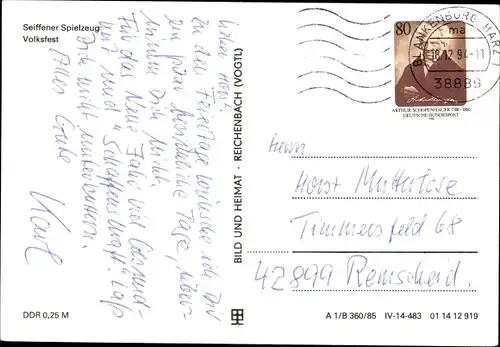 Seiffener Spielzeug
Volksfest
Lieber Horst!
Zu den Feiertagen wünsche ich Dir
ein paar
nimm Dich nicht
Für das Neue Jahr viel Gesund-
heit und "Schaffenskraft". Laß
Dich nicht unterbuttern.
Alles Gute
Karl
BILD UND HEIMAT · REICHENBACH (VOGTL)
80
ARTHUR SCHOPENHAUER 1788-1860
DEUTSCHE BUNDESPOST
BLANKENBURG, HARZ 1
ma
18.12.94-11
38889
Herrn
Horst Mutterlose
Timmersfeld 68
42899 Remscheid.
DDR 0,25 M
A 1/B 360/85 IV-14-483 01 14 12 919